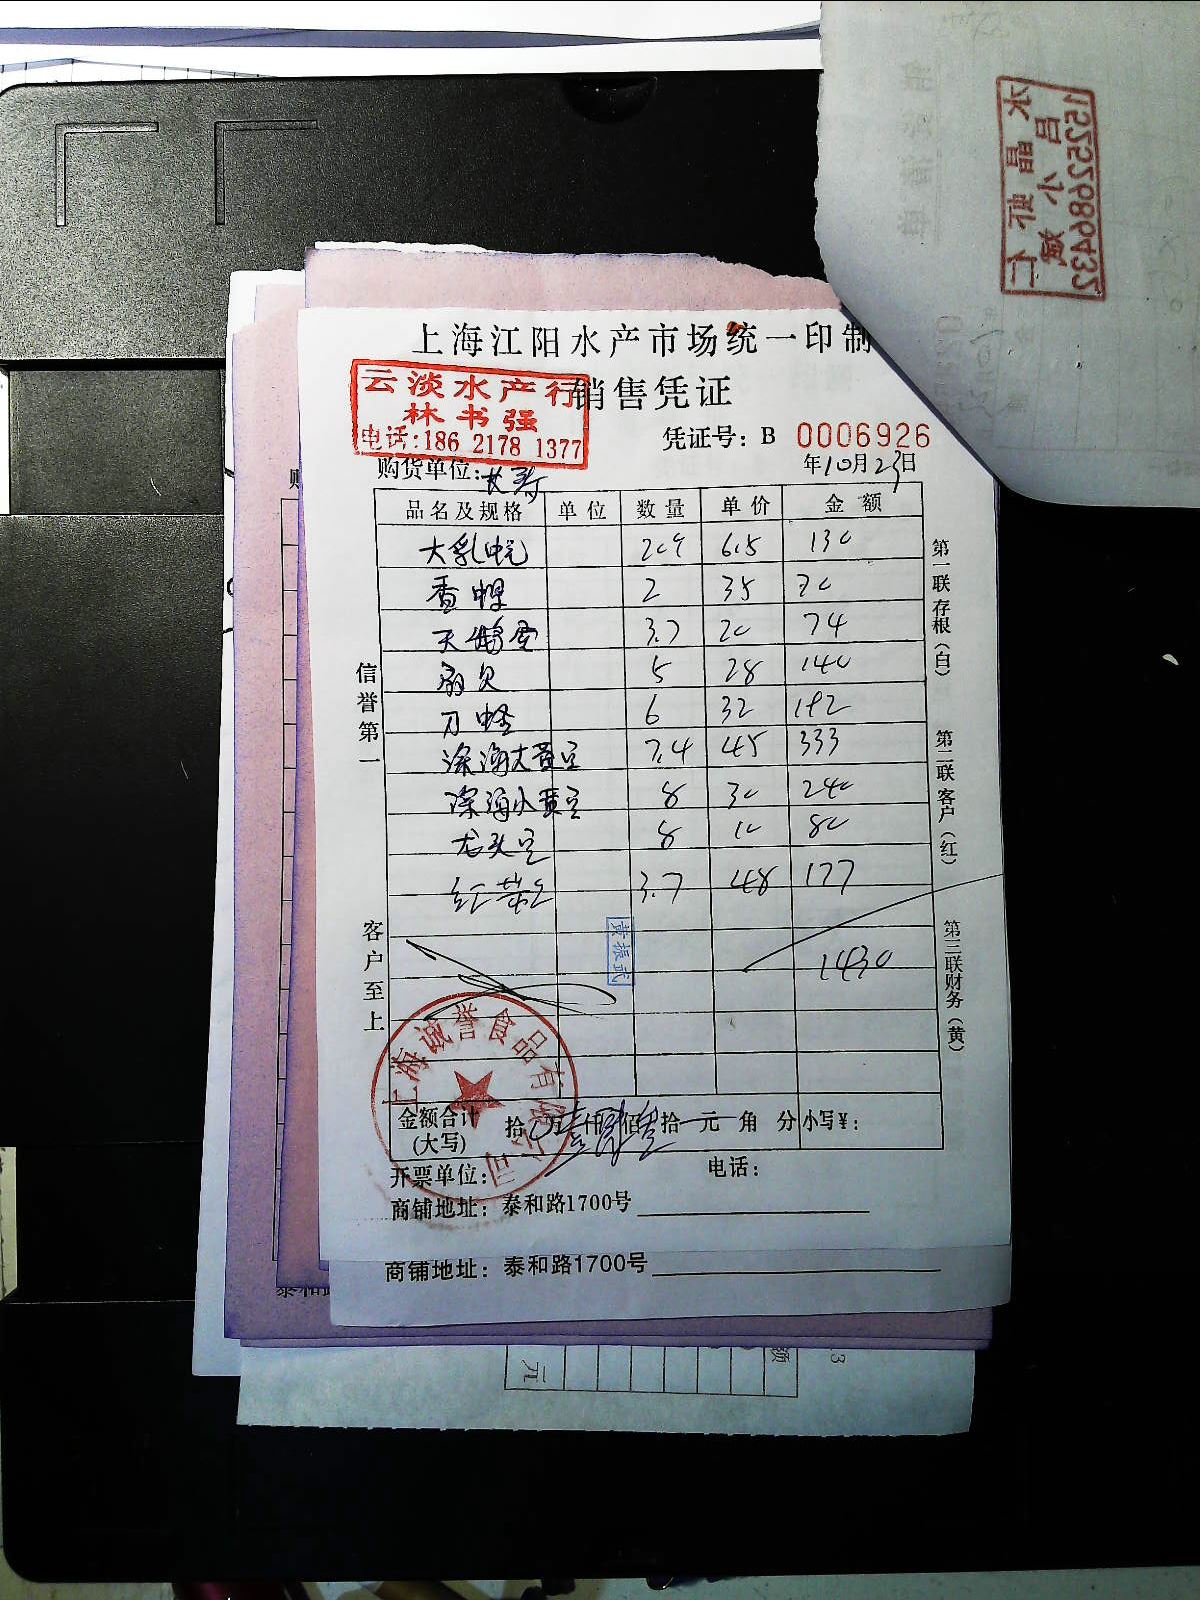 上海江阳水产市场统一印制
销售凭证
云淡水产行
林书强
电话:186 2178 1377
凭证号: B 0006926
购货单位:
年10月23日
品名及规格 单位 数量 单价 金额
大乳 2.0 65 130
香螺 2 35 70
天鹅蛋 3.7 20 74
扇贝 5 28 140
刀蛏 6 32 192
深海大黄豆 7.4 45 333
深海小黄豆 8 30 240
龙头豆 8 10 80
红 3.7 48 177
1430
黄振武
信誉第一
客户至上
第一联存根(白)
第二联客户(红)
第三联财务(黄)
上海诚誉食品有限公司
金额合计(大写) 拾 万 仟 佰 拾 元 角 分 小写¥:
开票单位: 电话:
商铺地址: 泰和路1700号
商铺地址: 泰和路1700号
泰和
元
额
3
水晶虾仁
吕小斌
15252686432